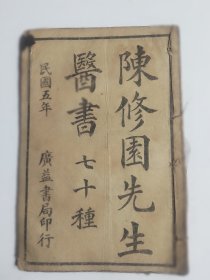 陳修園先生
醫書七十種
民國五年
廣益書局印行